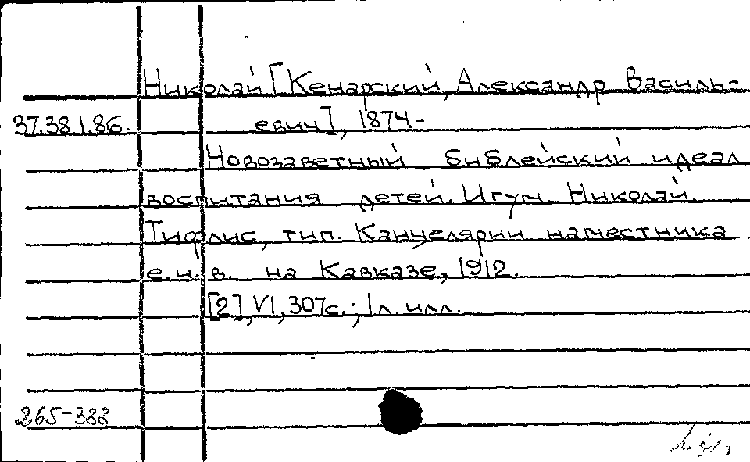 Николай [Кенарский, Александр Василь-
37.38.1.86. евич], 1874-
Новозаветный библейский идеал
воспитания детей. Игум. Николай.
Тифлис, тип. Канцелярии наместника
е.и.в. на Кавказе, 1912.
[2], VI, 307с.; 1л. илл.
265-383